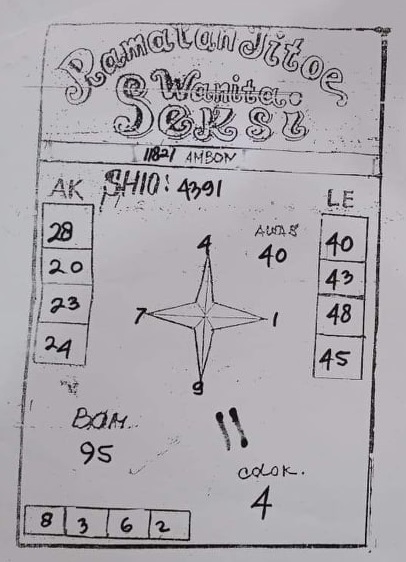 Ramalan Jitoe
Wanita
Seksi
11821 AMBON
AK SHIO: 4391 LE
28
20
23
24
4
7 1
9
AWAS
40
40
43
48
45
BOM
95
COLOK.
4
8 3 6 2